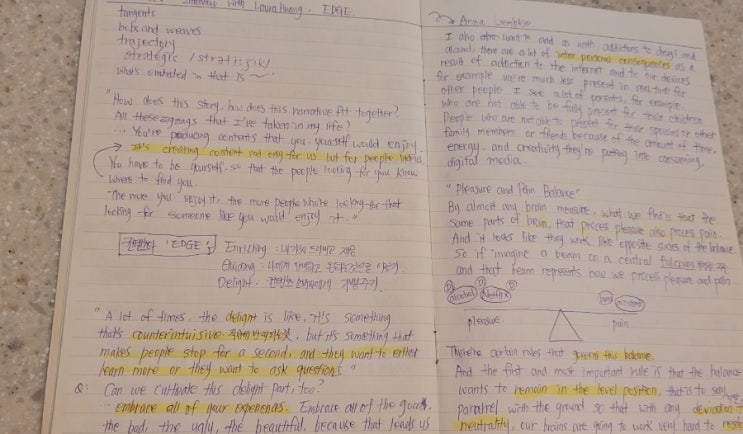 Interview with Laura Huang. EDGE
tangents
bobs and weaves
trajectory
strategic /strəti:ʒik/
what's embedded in that is ~
"How does this story, how does this narrative fit together?
All these zigzags that I've taken in my life?
... You're producing contents that you yourself would enjoy.
It's creating content not only for us but for people like us.
You have to be yourself, so that the people looking for you know
where to find you.
The more you enjoy it, the more people who're looking for that
looking for someone like you would enjoy it."
'EDGE' Enriching :
Guiding :
Delight :
"A lot of times, the delight is like, it's something
that's counterintuitive, but it's something that
makes people stop for a second, and they want to either
learn more or they want to ask questions"
Q: Can we cultivate this delight part, too?
embrace all of your experiences. Embrace all of the good,
the bad, the ugly, the beautiful, because that leads us
Anna Lembke
I also want to add as with addictions to drugs and
alcohol, there are a lot of inter personal consequences as a
result of addiction to the internet and to our devices
for example we're much less present in real time for
other people I see a lot of parents, for example,
who are not able to be fully present for their children
People who are not able to present for their spouses or other
family members or friends because of the amount of time,
energy, and creativity they're putting into consuming
digital media.
"Pleasure and Pain Balance"
By almost any brain measure, what we find is that the
same parts of brain, that process pleasure also process pain.
And it looks like they work like opposite sides of the balance.
So if imagine a beam on a central fulcrum
and that beam represents how we process pleasure and pain
alcohol Netflix
pleasure pain
There're certain rules that govern this balance.
And the first and most important rule is that the balance
wants to remain in the level position, that is to say,
parallel with the ground so that with any deviation
neutrality, our brains are going to work very hard to